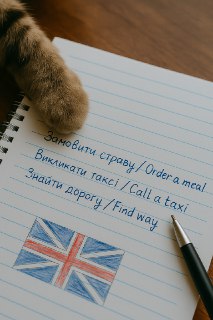 Замовити страву / Order a meal
Викликати таксі / Call a taxi
Знайти дорогу / Find way